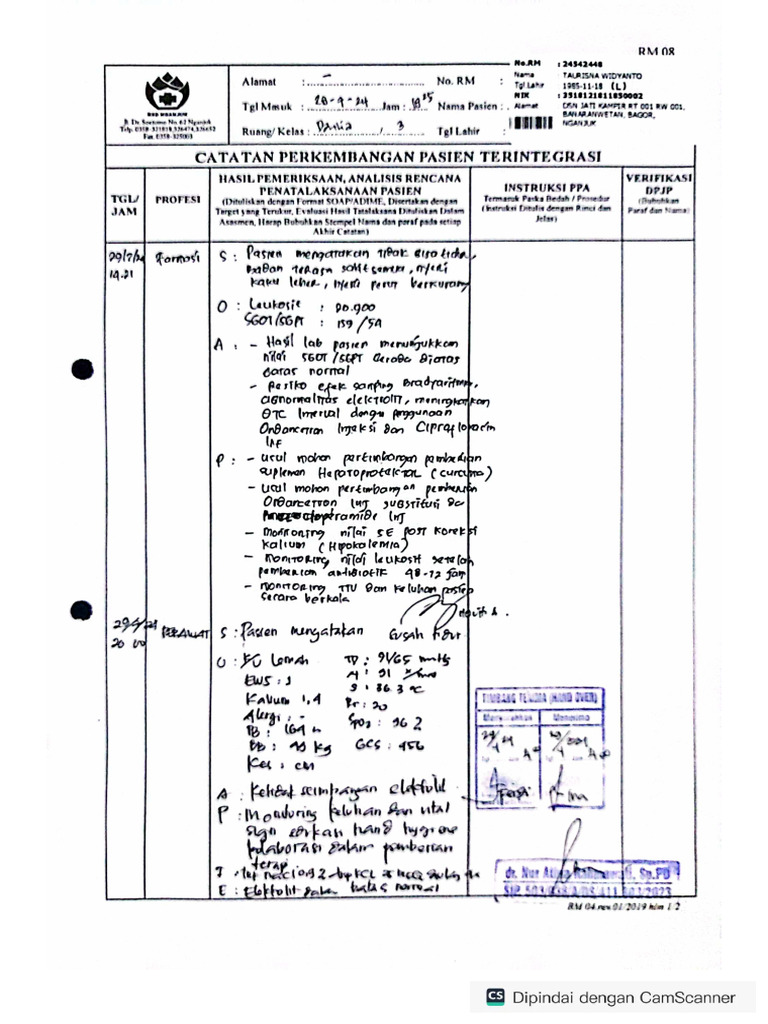 RM 08
RSD NGANJUK
Jl. Dr. Soetomo No. 62 Nganjuk
Telp. 0358-321818,326474,326652
Fax. 0358-325003
Alamat : - No. RM :
Tgl Masuk : 28-9-24 Jam : Nama Pasien :
Ruang/ Kelas : / 3 Tgl Lahir :
No.RM : 24542448
Nama : TAURISNA WIDYANTO
Tgl Lahir : 1985-11-18 (L)
NIK : 3518121811850002
Alamat : DSN JATI KAMPIR RT 001 RW 001,
BANARANWETAN, BAGOR,
NGANJUK
CATATAN PERKEMBANGAN PASIEN TERINTEGRASI
TGL/
JAM
PROFESI
HASIL PEMERIKSAAN, ANALISIS RENCANA
PENATALAKSANAAN PASIEN
(Dituliskan dengan Format SOAP/ADIME, Disertakan dengan
Target yang Terukur, Evaluasi Hasil Tatalaksana Dituliskan Dalam
Asesmen, Harap Bubuhkan Stempel Nama dan paraf pada setiap
Akhir Catatan)
INSTRUKSI PPA
Termasuk Paska Bedah / Prosedur
(Instruksi Ditulis dengan Rinci dan
Jelas)
VERIFIKASI
DPJP
(Bubuhkan
Paraf dan Nama)
14.21
Farmasi
S : Pasien mengatakan tidak bisa tidur,
badan terasa sakit semua, nyeri
kaku leher, nyeri perut berkurang
O : Leukosit :
SGOT/SGPT : 159 /
A : - Hasil lab pasien menunjukkan
nilai SGOT/SGPT berada diatas
batas normal
- Resiko efek samping Bradyaritmia,
abnormalitas elektrolit, meningkatkan
QTC Interval dengan penggunaan
Ondancetron Injeksi dan Ciprofloxacin
Inf
P : - Usul mohon pertimbangan pemberian
suplemen Hepatoprotektor (curcuma)
- Usul mohon pertimbangan pemberian
Ondancetron Inj substitusi
Inj
- Monitoring nilai SE post koreksi
kalium (Hipokalemia)
- Monitoring nilai leukosit setelah
pemberian antibiotik 48-72 jam
- Monitoring TTV dan keluhan pasien
secara berkala
20 00
PERAWAT
S : Pasien mengatakan susah tidur
O : KU lemah TD : 91/65 mmHg
EWS : 1 N : 91 x/mnt
Kalium 1,4 S : 36.3 °C
Alergi : - RR : 20
TB : 164 SPO2 : 96
BB : 49 kg GCS : 456
Kes : cm
A : Ketidak seimbangan elektrolit
P : Monitoring keluhan dan vital
sign hand hygiene
kolaborasi dalam pemberian
terapi
E : Elektrolit dalam batas normal
TIMBANG TERIMA (HAND OVER)
Menyerahkan Menerima
dr. Nur Sp.PD
RM 04.rev.01/2019 hlm 1/2
CS Dipindai dengan CamScanner